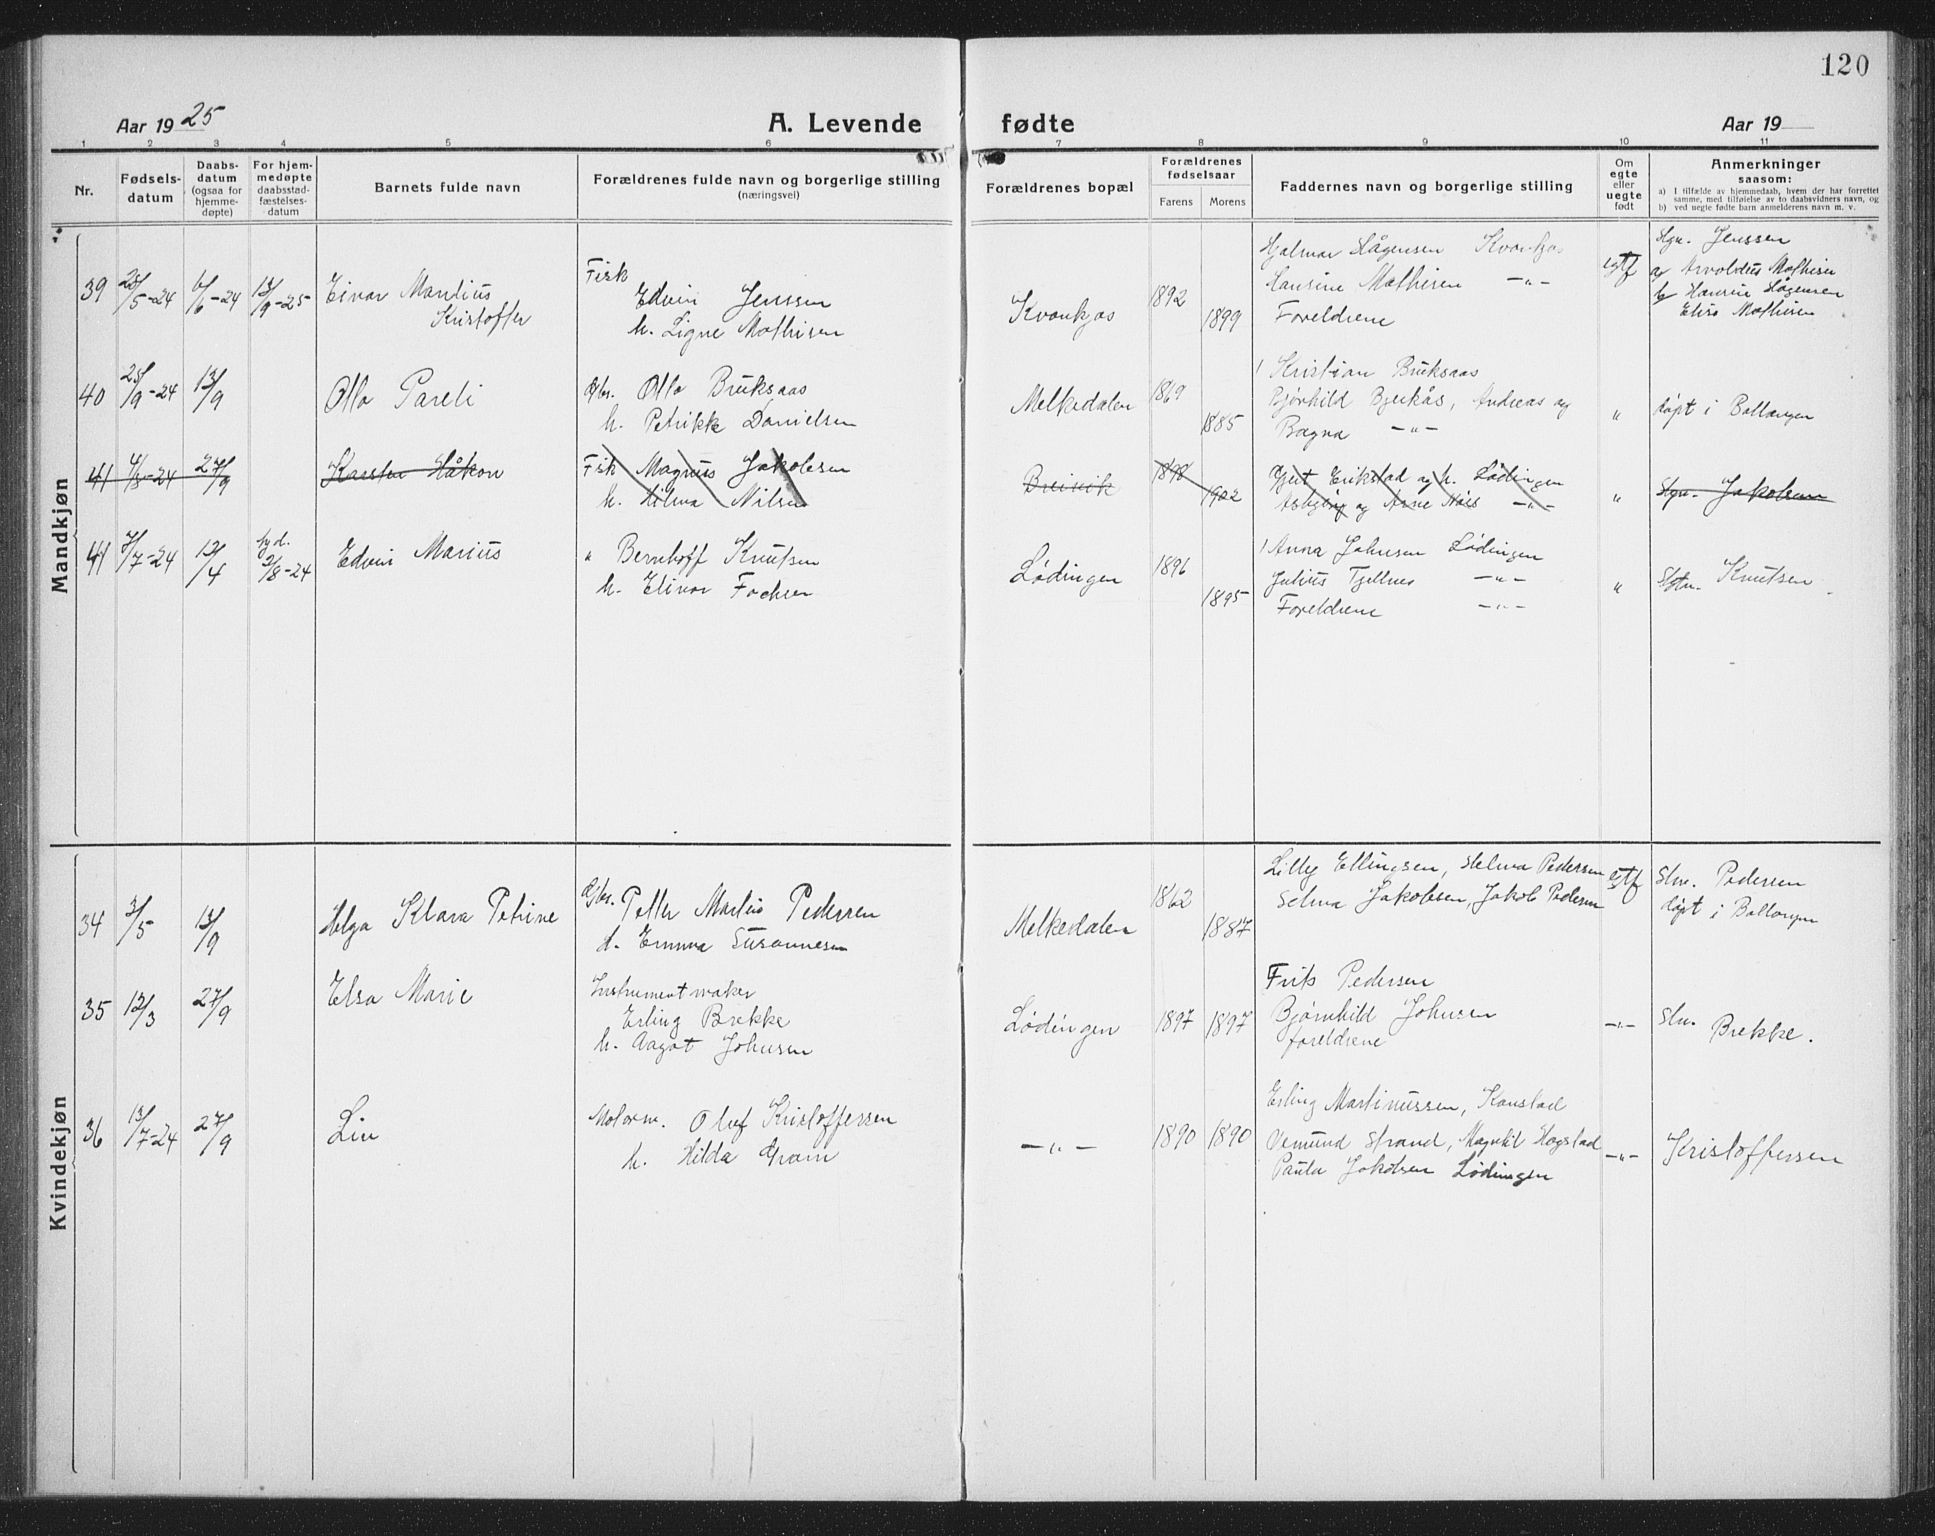 120
Aar 1925
A. Levende fødte
Aar 19
1 2 3 4 5 6 7 8 9 10 11
Nr.
Fødsels-
datum
Daabs-
datum
(ogsaa for
hjemme-
døpte)
For hjem-
medøpte
daabsstad-
fæstelses-
datum
Barnets fulde navn
Forældrenes fulde navn og borgerlige stilling
(næringsvei)
Forældrenes bopæl
Forældrenes
fødselsaar
Farens Morens
Faddernes navn og borgerlige stilling
Om
egte
eller
uegte
født
Anmerkninger
saasom:
a) I tilfælde av hjemmedaab, hvem der har forrettet
samme, med tilføielse av to daabsvidners navn, og
b) ved uegte fødte barn anmelderens navn m. v.
Mandkjøn
39 25/5-24 6/6-24 13/9-25
Einar Mantius
Kristoffer
Fisk
Edvin Jenssen
h. Ligne Mathisen
Kvankjos
1892
1899
Hjalmar Hågensen Kvankjos
Hansine Mathisen -"-
Foreldrene
egtf
Sgn. Jenssen
a/ Arnoldus Mathisen
b/ Hansine Hågensen
Elise Mathisen
40 25/9-24 13/9
Otto Pareli
Gbr. Otto Bruksaas
h. Petrikke Danielsen
Melkedalen
1869
1885
Kristian Bruksaas
Bjørhild Bjerkås, Andreas og
Ragna -"-
"
døpt i Ballangen
41 4/3-24 27/9
Karsten Håkon
Fisk Magnus Jakobsen
h. Hilma Nilsen
Breivik
1898
1902
Gjert Erikstad og h. Lødingen
Asbjørg og Arne Hals -"-
"
Sgn. Jakobsen
41 7/7-24 12/4
hjd.
3/8-24
Edvin Marius
" Bernhoff Knutsen
h. Elinor Fochsen
Lødingen
1896
1895
Anna Johnsen Lødingen
Julius Tjellnes -"-
Foreldrene -"-
"
Knutsen
Kvindekjøn
34 3/5 13/9
Helga Klara Petrine
Gbr. Petter Martius Pedersen
h. Emma Susannesen
Melkedalen
1862
1887
Lilly Ellingsen, Helma Pedersen
Selma Jakobsen, Jakob Pedersen
egtf
Stn. Pedersen
døpt i Ballangen
35 12/3 27/9
Elsa Marie
Instrumentmaker
Erling Brekke
h. Aagot Johnsen
Lødingen
1897 1897
Frits Pedersen
Bjørnhild Johnsen
foreldrene
-"-
Stn. Brekke.
36 13/7-24 27/9
Liv
Motorm. Oluf Kristoffersen
h. Hilda Gram
-"-
1890 1890
Erling Martinussen, Kanstad
Vemund Strand, Magnhil Hogstad
Paula Jakobsen Lødingen
-"-
Kristoffersen